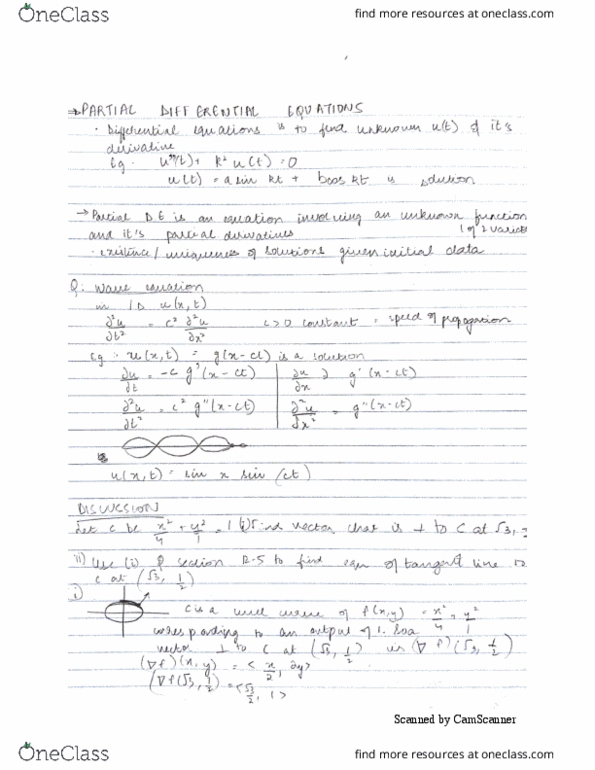 OneClass
find more resources at oneclass.com
⇒ PARTIAL DIFFERENTIAL EQUATIONS
· Differential equations is to find unknown u(t) & it's
derivative
Eg. u''(t) + k² u(t) = 0
u(t) = a sin kt + b cos kt is solution
→ Partial D E is an equation involving an unknown function
and it's partial derivatives
· existence / uniqueness of solutions given initial data
Q: wave equation
in 1D u(x,t)
∂²u/∂t² = c² ∂²u/∂x² c>0 constant = speed of propagation
Eg :- u(x,t) = g(x-ct) is a solution
∂u/∂t = -c g'(x-ct) | ∂u/∂x = g'(x-ct)
∂²u/∂t² = c² g''(x-ct) | ∂²u/∂x² = g''(x-ct)
u(x,t) = sin x sin (ct)
DISCUSSION
Let C be x²/4 + y²/1 = 1 (i) Find vector that is ⊥ to C at √3,
ii) Use (i) & section 12.5 to find eqn of tangent line to
C at (√3, 1/2)
i)
C is a level curve of f(x,y) = x²/4 + y²/1
corresponding to an output of 1. So a
vector ⊥ to C at (√3, 1/2) is (∇f)(√3, 1/2)
(∇f)(x,y) = < x/2, 2y>
(∇f(√3, 1/2) = <√3/2, 1>
Scanned by CamScanner
OneClass
find more resources at oneclass.com